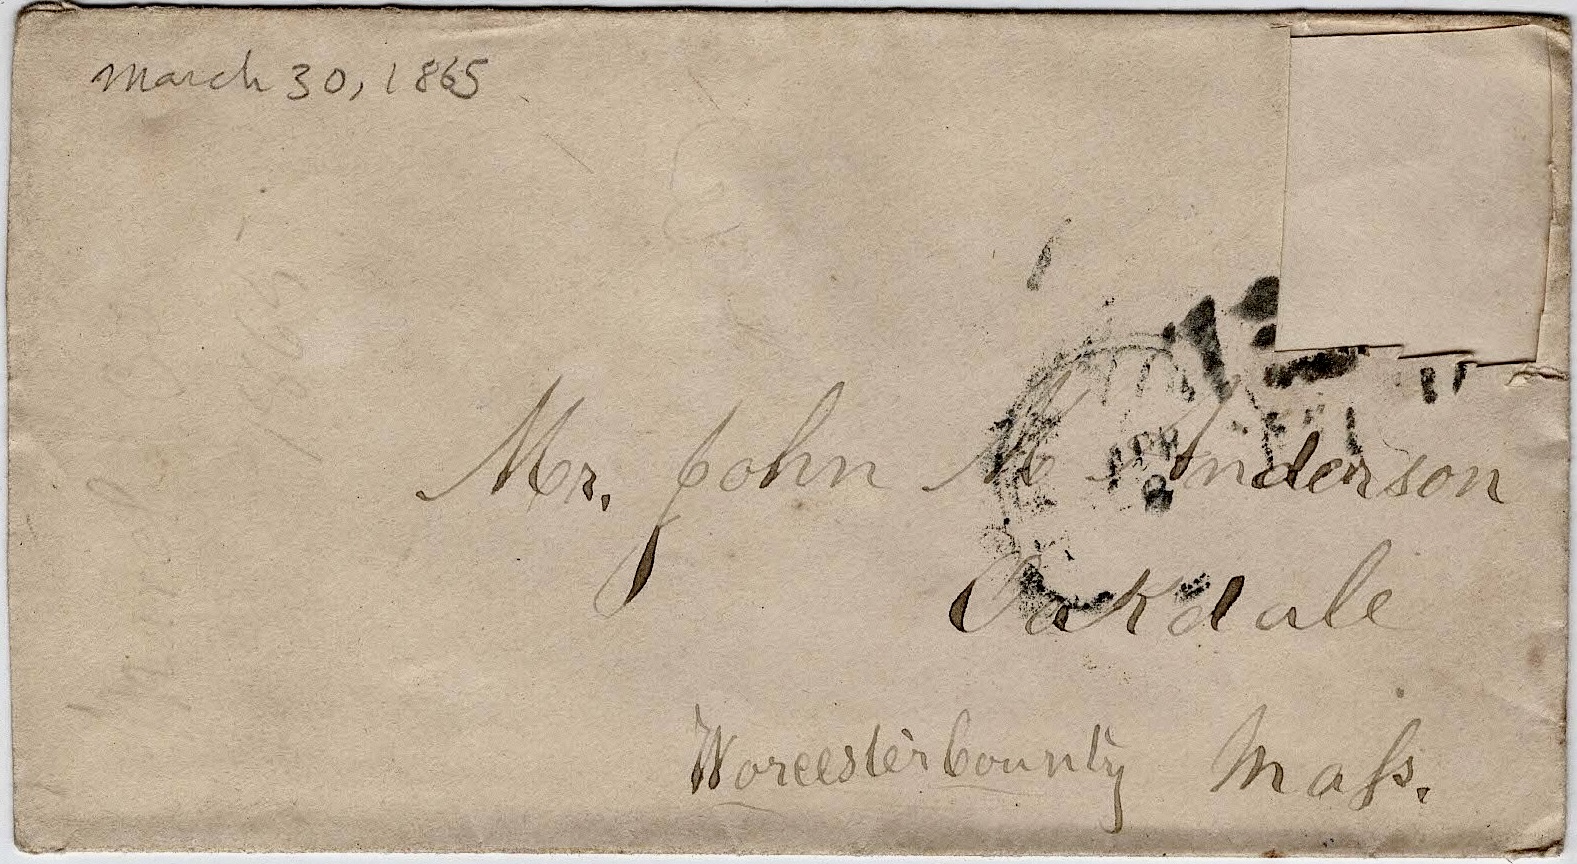 March 30, 1865
Mr. John M Anderson
APR
Oakdale
Worcester County Mass.